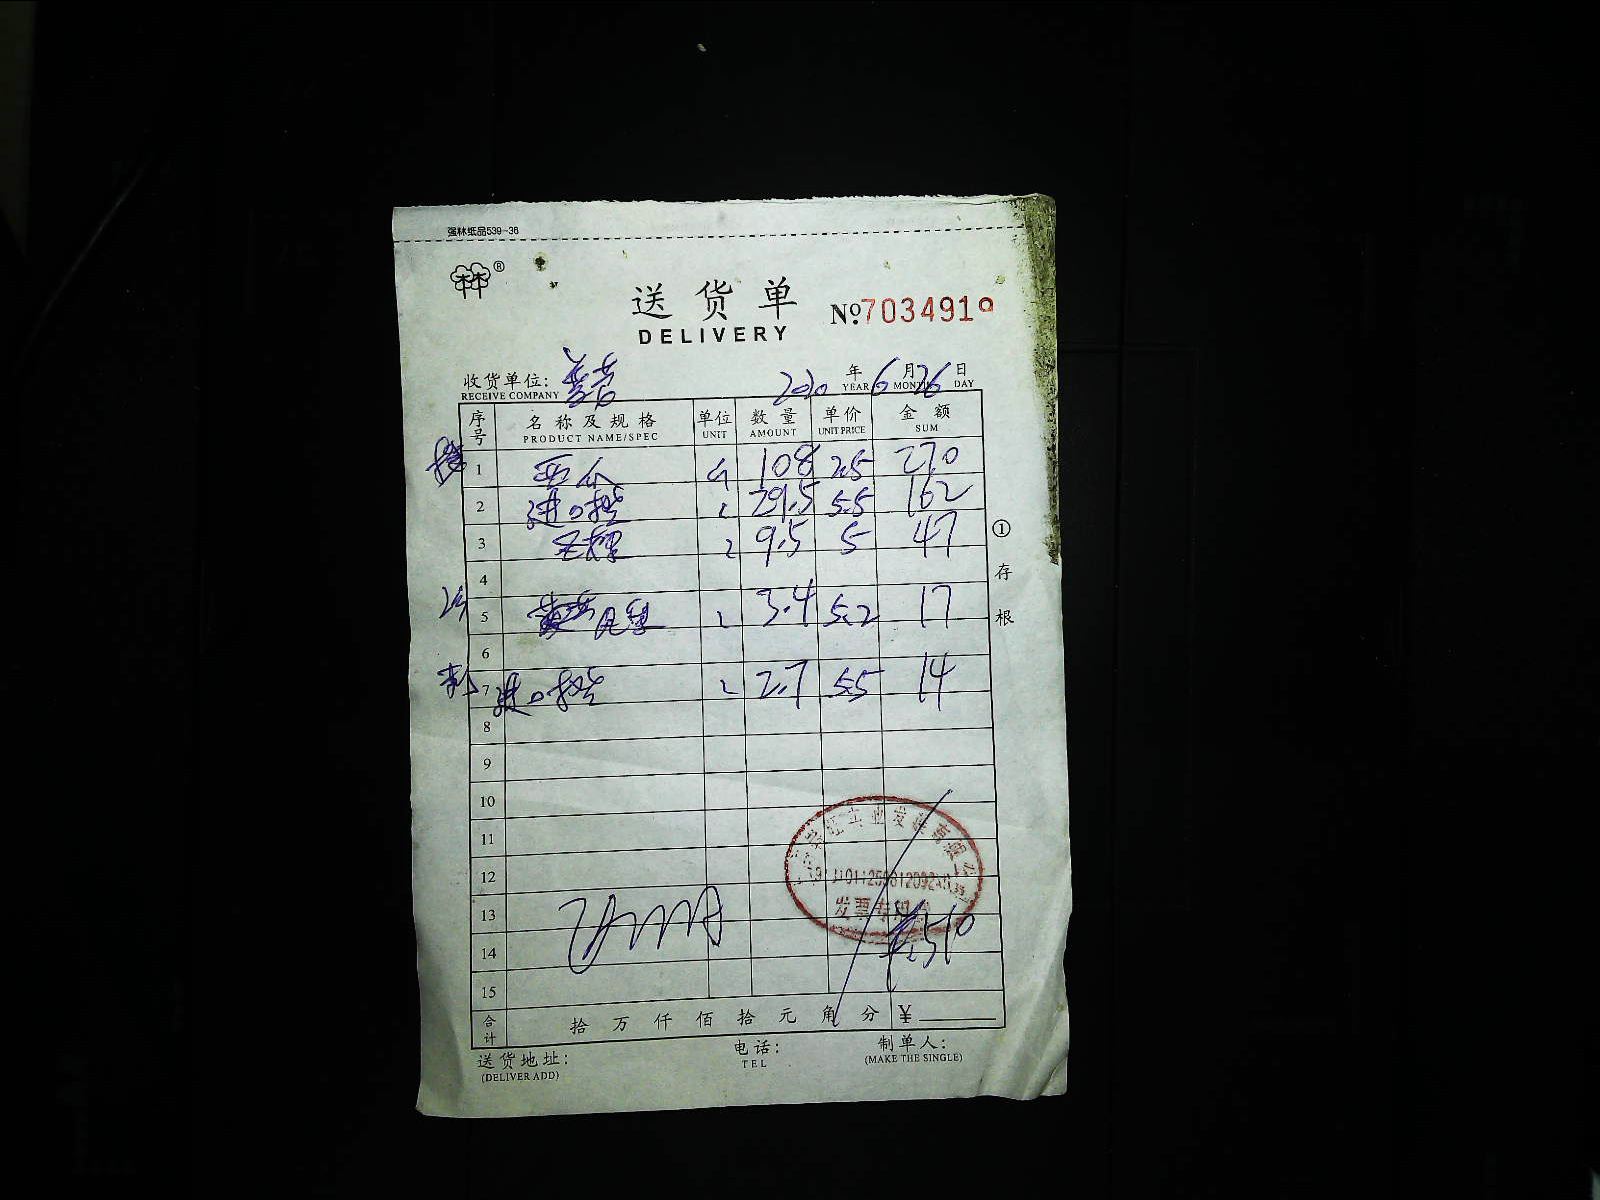 强林纸品539-36
林林®
送货单
DELIVERY
№7034919
收货单位:
RECEIVE COMPANY
2020年6月26日
YEAR MONTH DAY
序号 名称及规格 单位 数量 单价 金额
PRODUCT NAME/SPEC UNIT AMOUNT UNIT PRICE SUM
1 西瓜 108 2.5 270
2 进口橙 29.5 5.5 162
3 9.5 5 47
4
5 3.4 5.2 17
6
7 进口橙 2.7 5.5 14
8
9
10
11
12
13
14
15
¥510
发票专用章
合计 拾万仟佰拾元角分 ¥
送货地址:
(DELIVER ADD)
电话:
TEL
制单人:
(MAKE THE SINGLE)
①存根